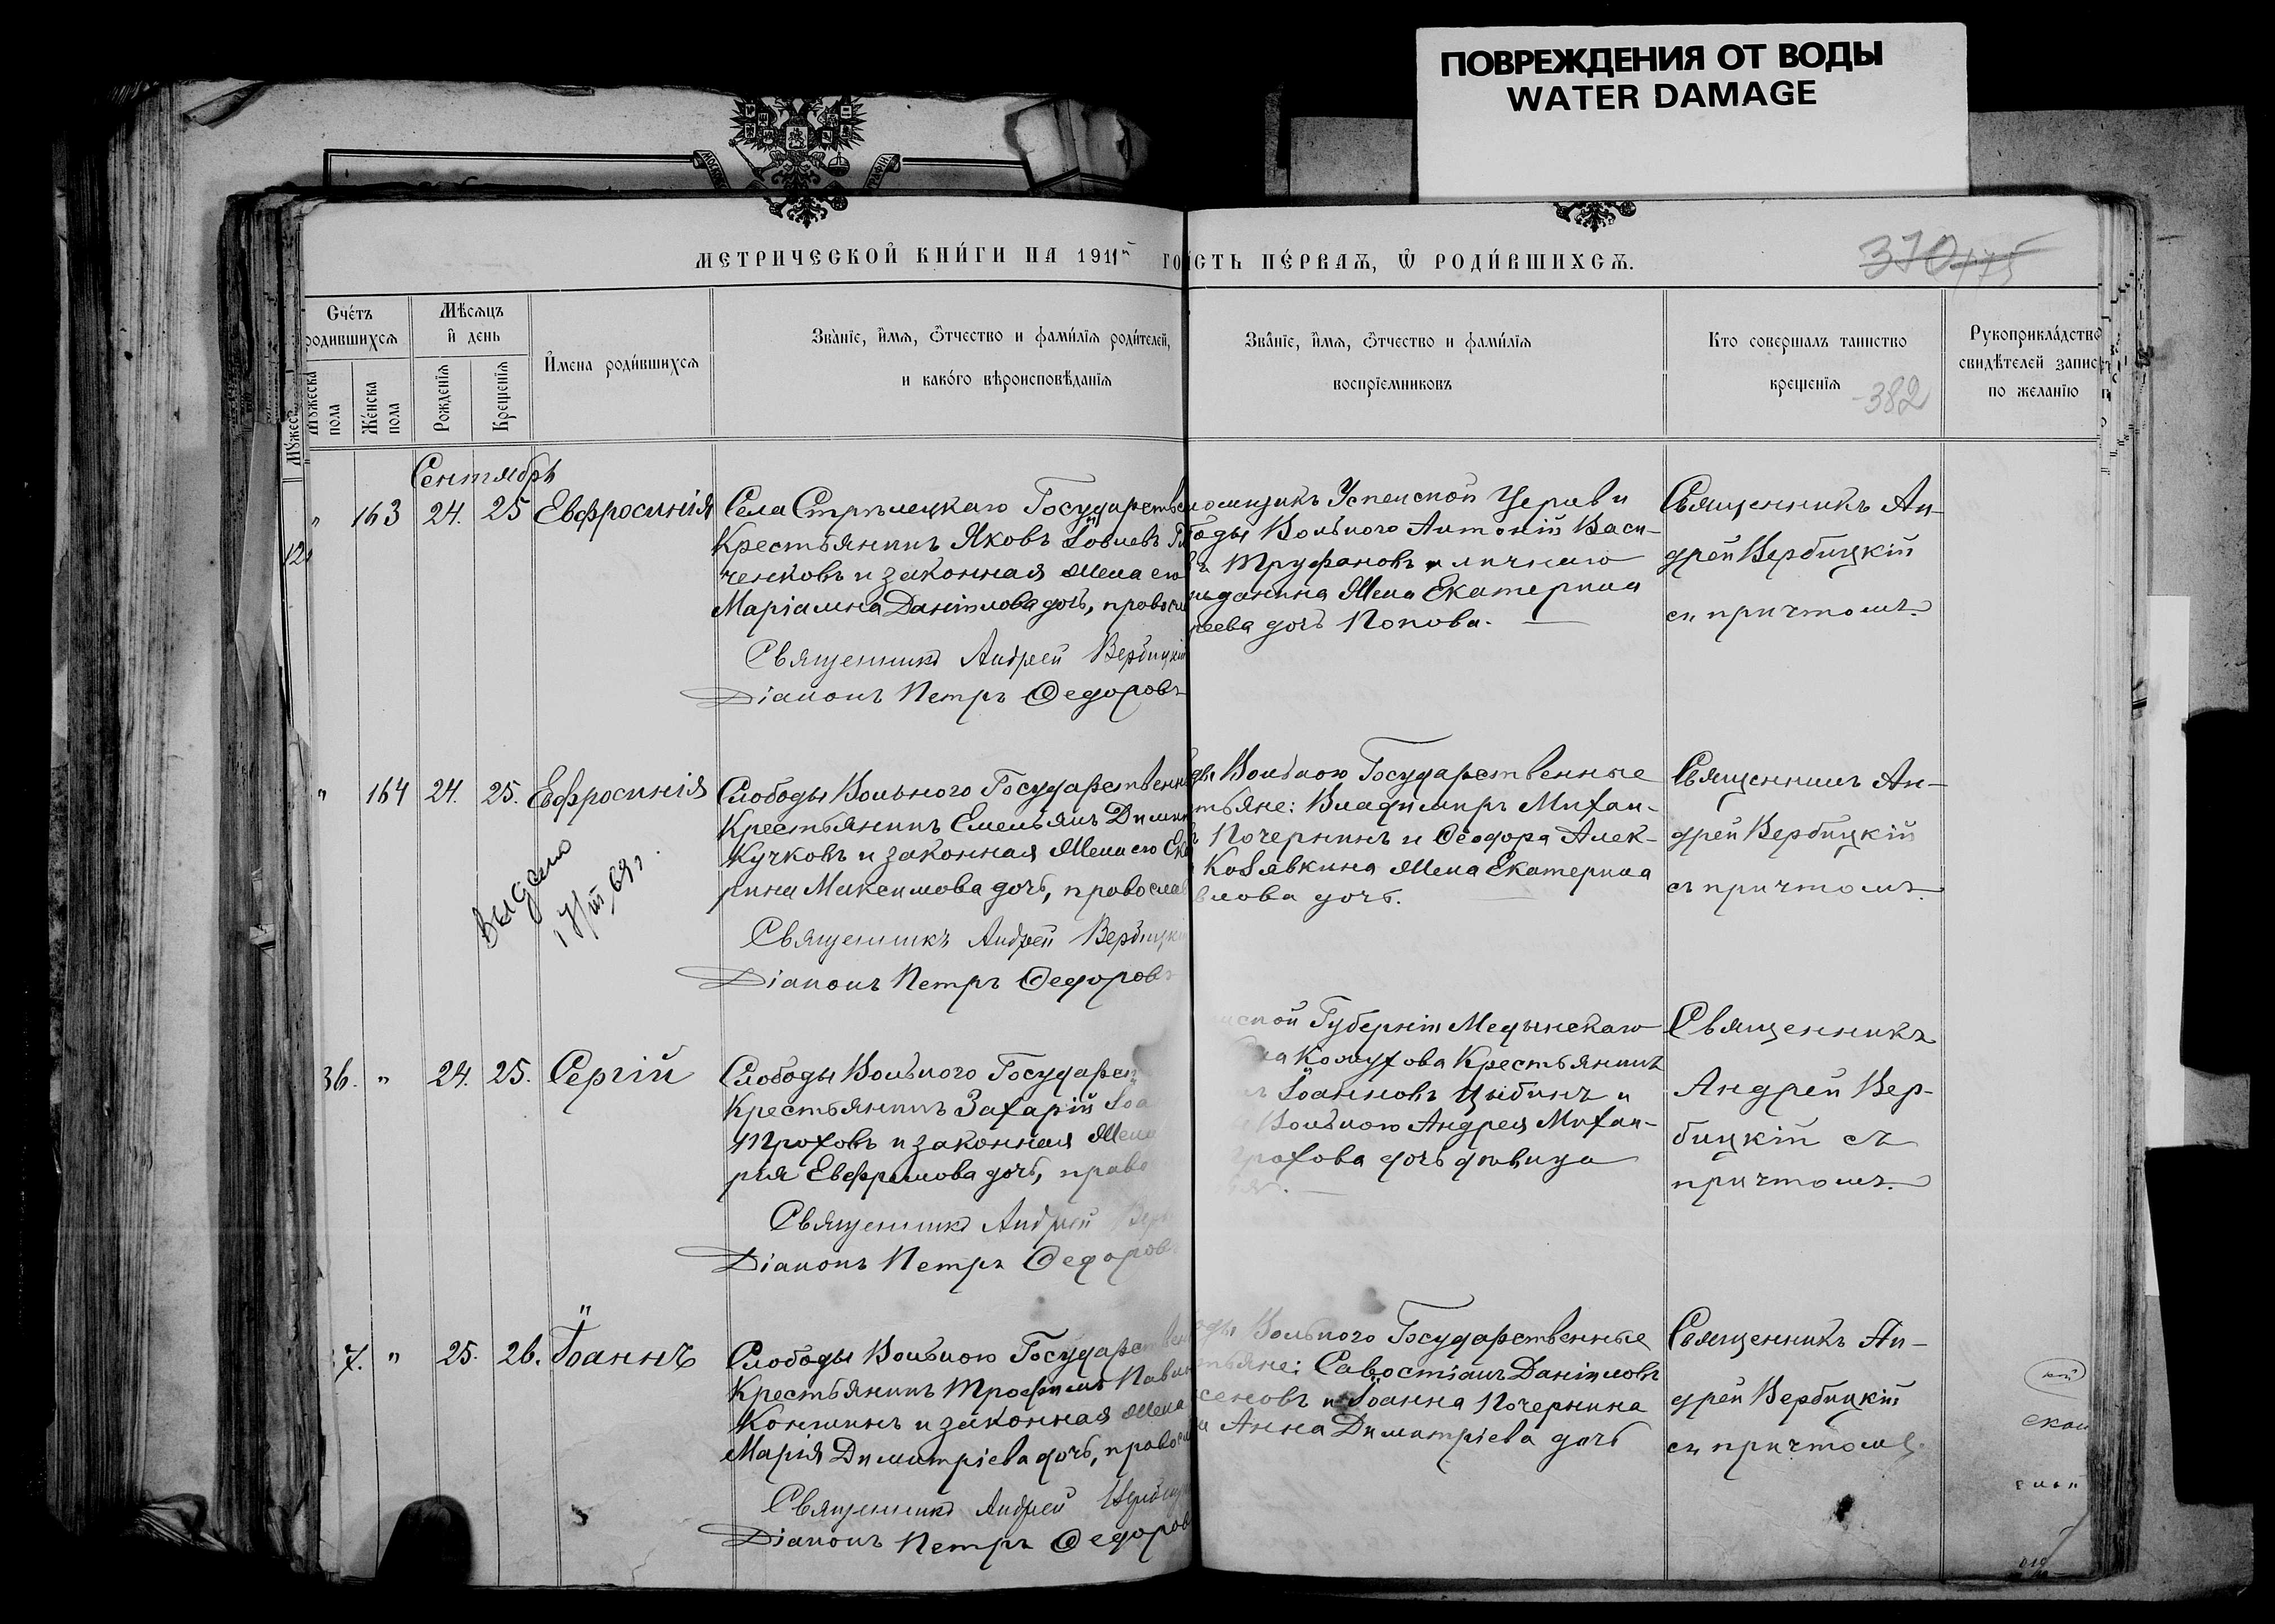 ПОВРЕЖДЕНИЯ ОТ ВОДЫ
WATER DAMAGE
МЕТРИЧЕСКОЙ КНИ́ГИ НА 1911й
СТЬ ПЕ́РВАѦ, Ѿ РОДИ́ВШИХСѦ.
370
175
Сче́тъ
родившихсѧ
Мꙋжеска
пола
Же́нска
пола
Мѣ́сѧцъ
и҆ день
Рожденїѧ
Крещенїѧ
И҆мена роди́вшихсѧ
Зва́нїе, и҆́мѧ, ѻ҆́тчество и фами́лїѧ роди́телей,
и како́го вѣроисповѣ́данїѧ
Зва́нїе, и҆́мѧ, ѻ҆́тчество и фами́лїѧ
воспрїемниковъ
Кто совершалъ таинство
крещенїѧ
382
Рꙋкоприкла́дство
свидѣ́телей запис
по желанїю
Сентябрь
" 163 24. 25 Евфросинія
Села Стрѣлецкаго Государств
Крестьянинъ Яковъ Іовлевъ
ченковъ и законная жена его
Маріамна Даніилова дочь, правосл
Священникъ Андрей Вербицкій
Діаконъ Петръ Федоровъ
Успенской Церкви
Вольного Антоній Васи-
Труфановъ и личнаго
жена Екатерина
дочь Попова.
Священникъ Ан-
дрей Вербицкій
съ причтомъ.
" 164 24. 25. Евфросинія
выдано
17/III 69 г.
Слободы Вольного Государственн
Крестьянинъ Емельянъ Дими
Кучковъ и законная жена его Ека
рина Максимова дочь, православ
Священникъ Андрей Вербицкій
Діаконъ Петръ Федоровъ
ды Вольного Государственные
тьяне: Владимиръ Михаи-
Почернинъ и Ѳеодора Алек-
Козявкина жена Екатерина
влова дочь.
Священникъ Ан-
дрей Вербицкій
съ причтомъ.
36. " 24. 25. Сергій
Слободы Вольного Государст
Крестьянинъ Захарій Іоа
Проховъ и законная жена
рія Евфремова дочь, право
Священникъ Андрей Вер
Діаконъ Петръ Федоровъ
ской Губерніи Медынскаго
Крестьянинъ
Іоанновъ Цыбинъ и
Вольного Андрея Михаи-
рохова дочь дѣвица
Священникъ
Андрей Вер-
бицкій съ
причтомъ.
7. " 25. 26. Іоаннъ
Слободы Вольного Государствен
Крестьянинъ Трофимъ Павло
Коншинъ и законная жена
Марія Димитріева дочь, правосл
Священникъ Андрей Вербицк
Діаконъ Петръ Федоров
оды Вольного Государственные
тьяне: Савостіанъ Даніиловъ
сеновъ и Іоанна Почернина
Анна Димитріева дочь
Священникъ Ан-
дрей Вербицкій
съ причтомъ.